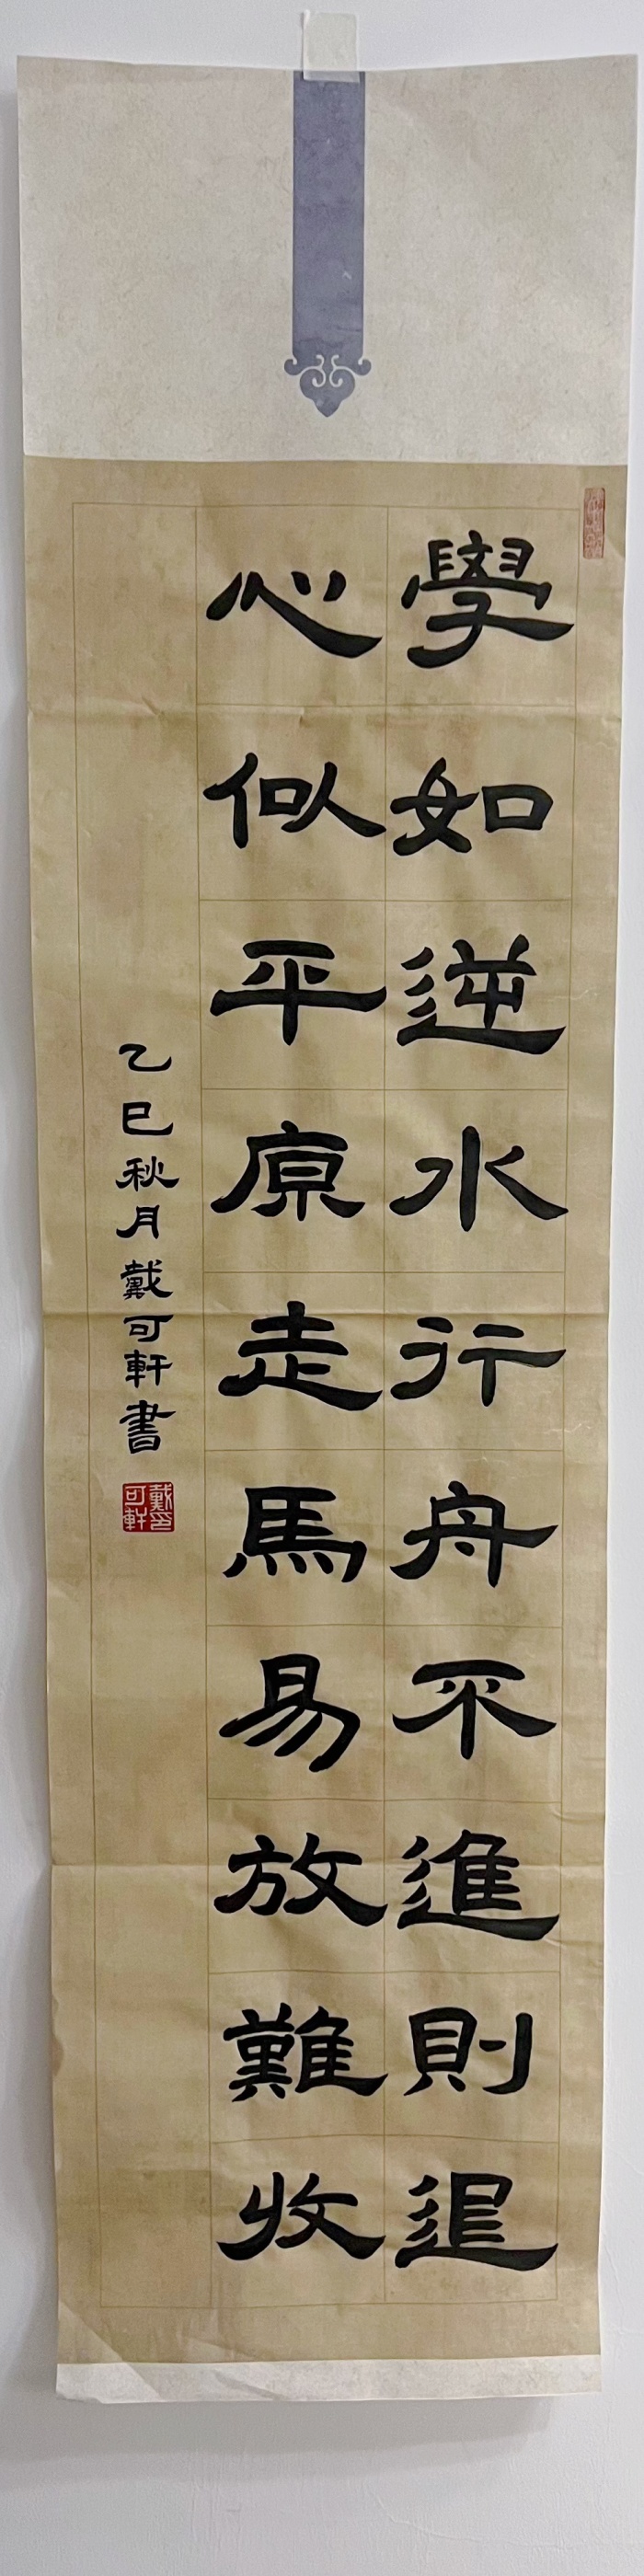 學如逆水行舟不進則退
心似平原走馬易放難收
乙巳秋月戴可軒書
戴可軒印